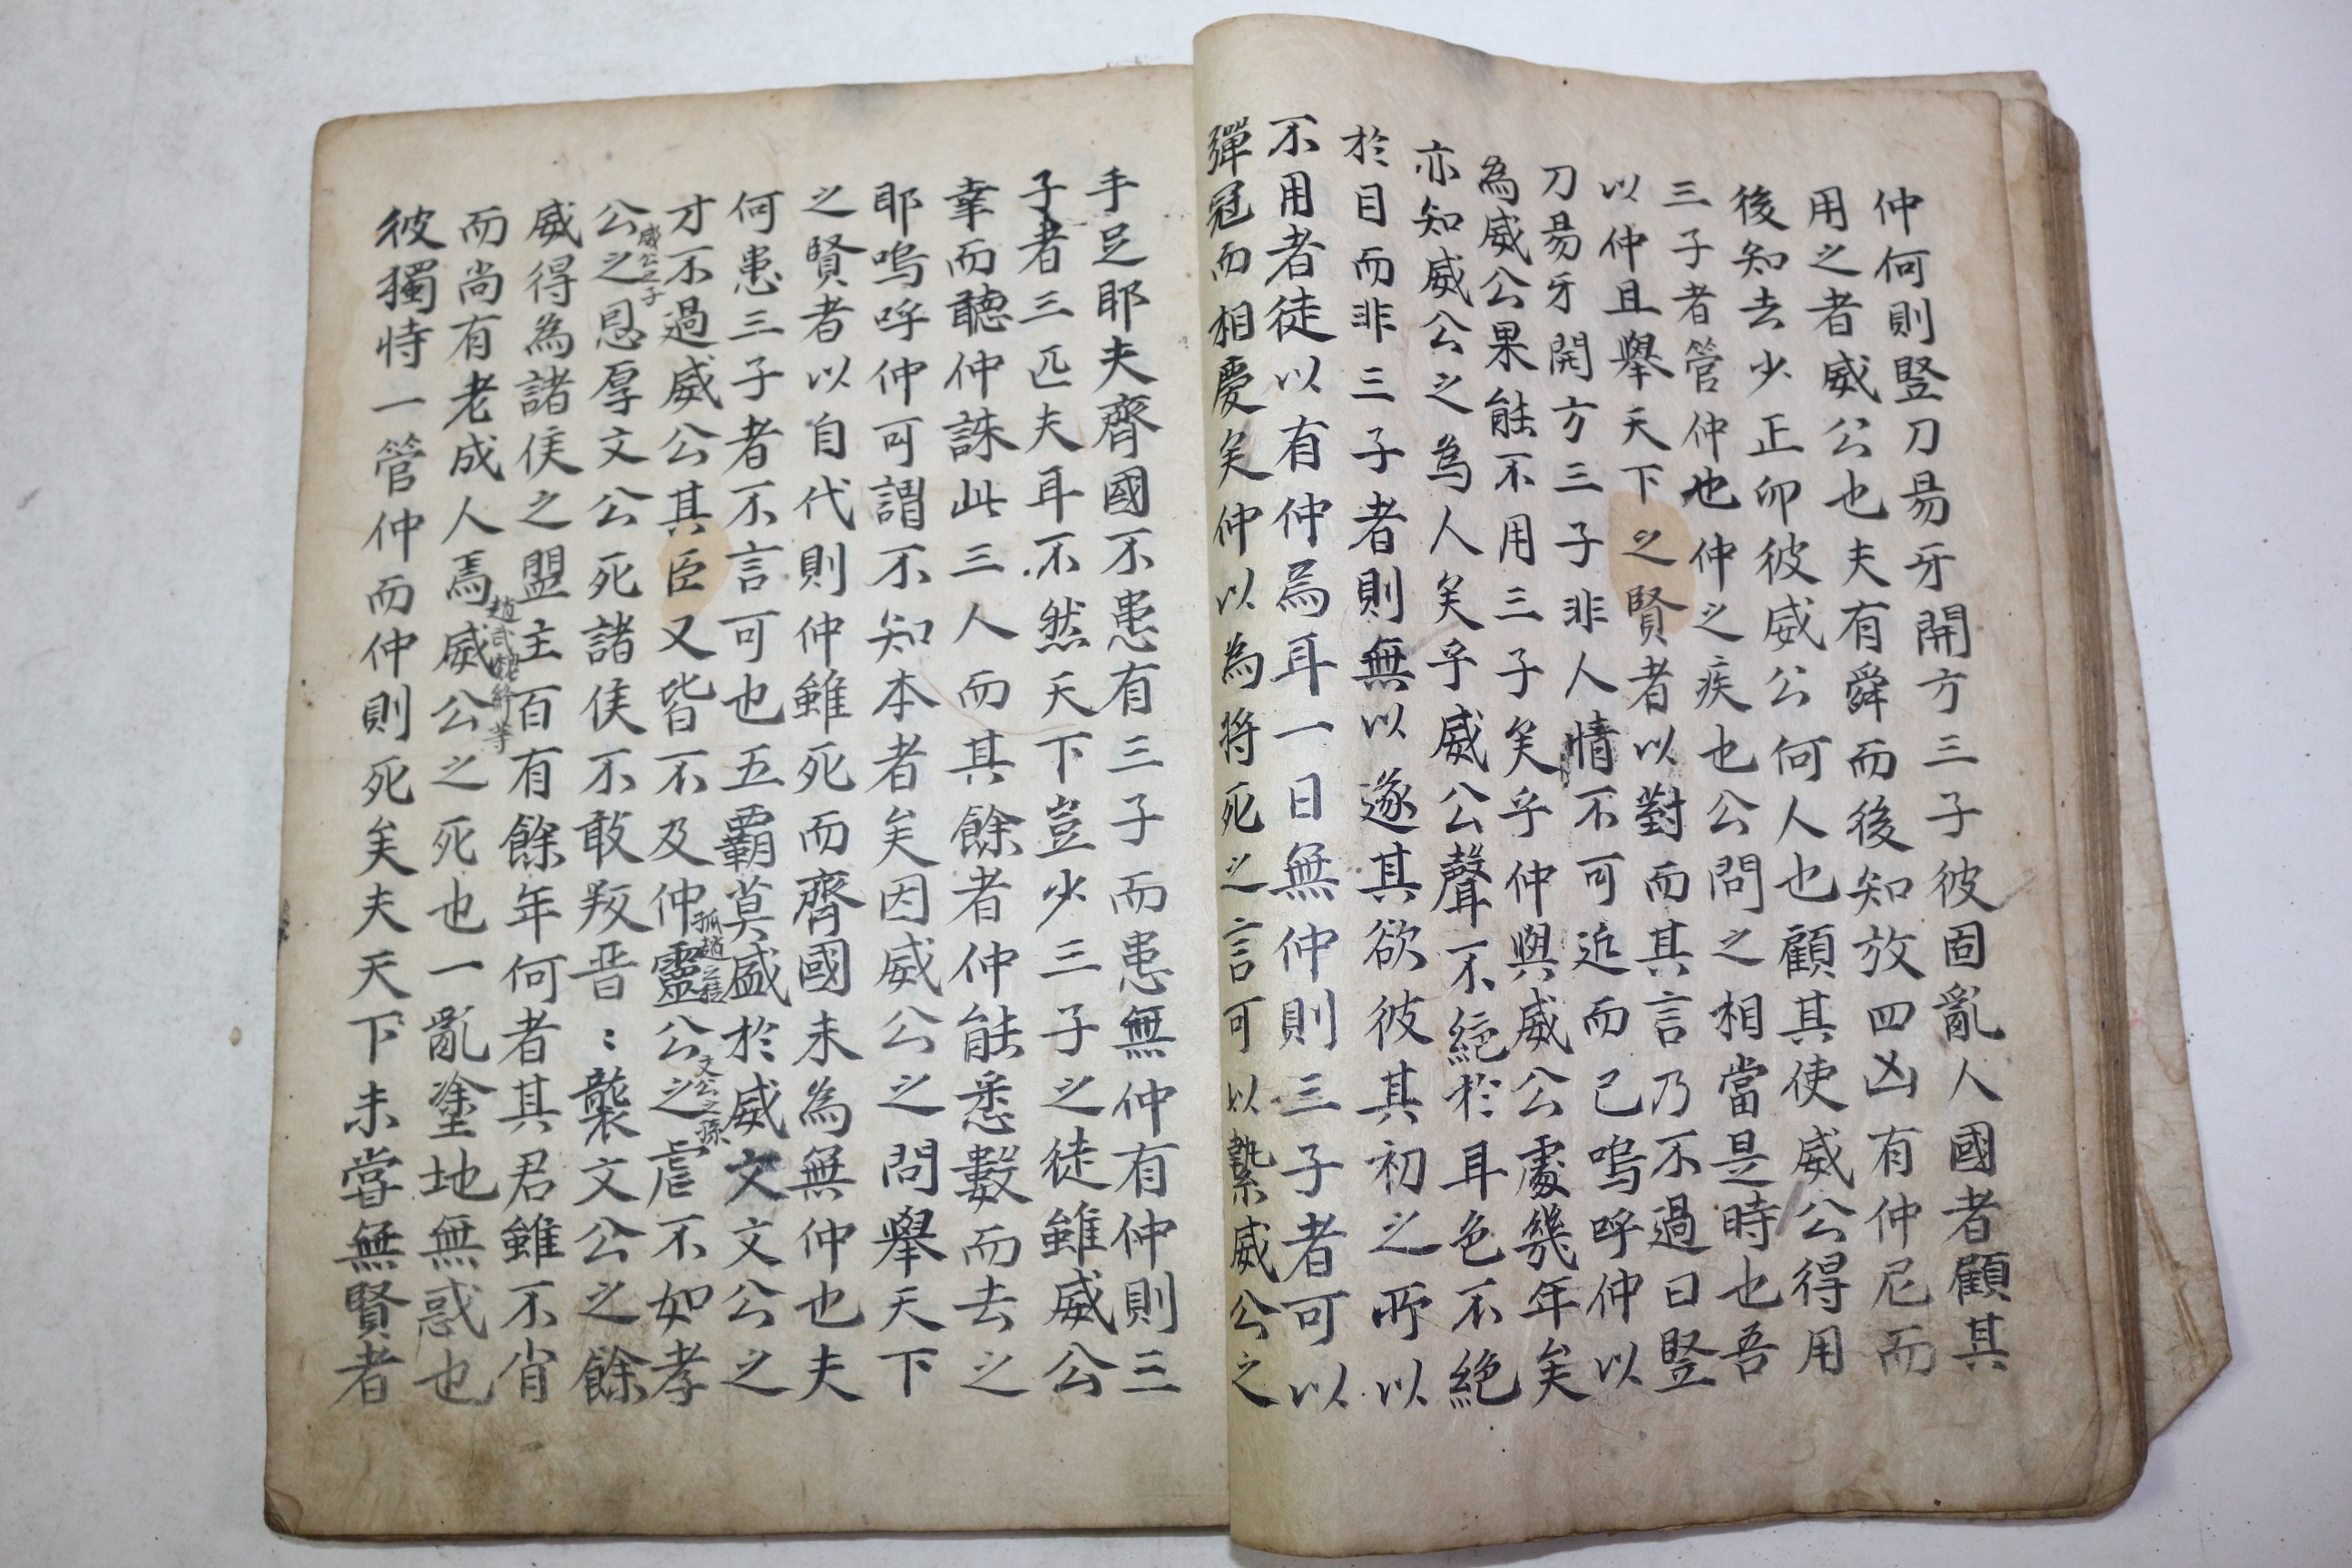 仲何則竪刀易牙開方三子彼固亂人國者顧其
用之者威公也夫有舜而後知放四凶有仲尼而
後知去少正卯彼威公何人也顧其使威公得用
三子者管仲也仲之疾也公問之相當是時也吾
以仲且舉天下之賢者以對而其言乃不過曰竪
刀易牙開方三子非人情不可近而已嗚呼仲以
為威公果能不用三子矣乎仲與威公處幾年矣
亦知威公之為人矣乎威公聲不絕於耳色不絕
於目而非三子者則無以遂其欲彼其初之所以
不用者徒以有仲焉耳一日無仲則三子者可以
彈冠而相慶矣仲以為將死之言可以縶威公之
手足耶夫齊國不患有三子而患無仲有仲則三
子者三匹夫耳不然天下豈少三子之徒雖威公
幸而聽仲誅此三人而其餘者仲能悉數而去之
耶嗚呼仲可謂不知本者矣因威公之問舉天下
之賢者以自代則仲雖死而齊國未為無仲也夫
何患三子者不言可也五霸莫盛於威文文公之
才不過威公其臣又皆不及仲靈公之虐不如孝
狐趙之徒
文公之孫
公之恩厚文公死諸侯不敢叛晋〻襲文公之餘
威公之子
威得為諸侯之盟主百有餘年何者其君雖不肖
而尚有老成人焉威公之死也一亂塗地無惑也
彼獨恃一管仲而仲則死矣夫天下未嘗無賢者